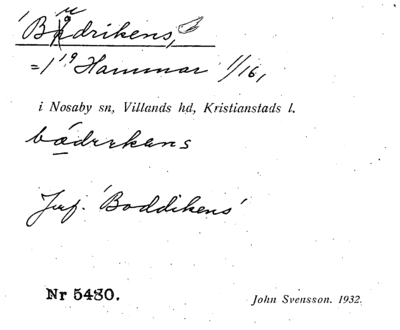 'Bodrikens,
=1¹⁹ Hammar 1/16,
i Nosaby sn, Villands hd, Kristianstads l.
bådrekans
Jmf. 'Boddikens'
Nr 5480.
John Svensson. 1932.